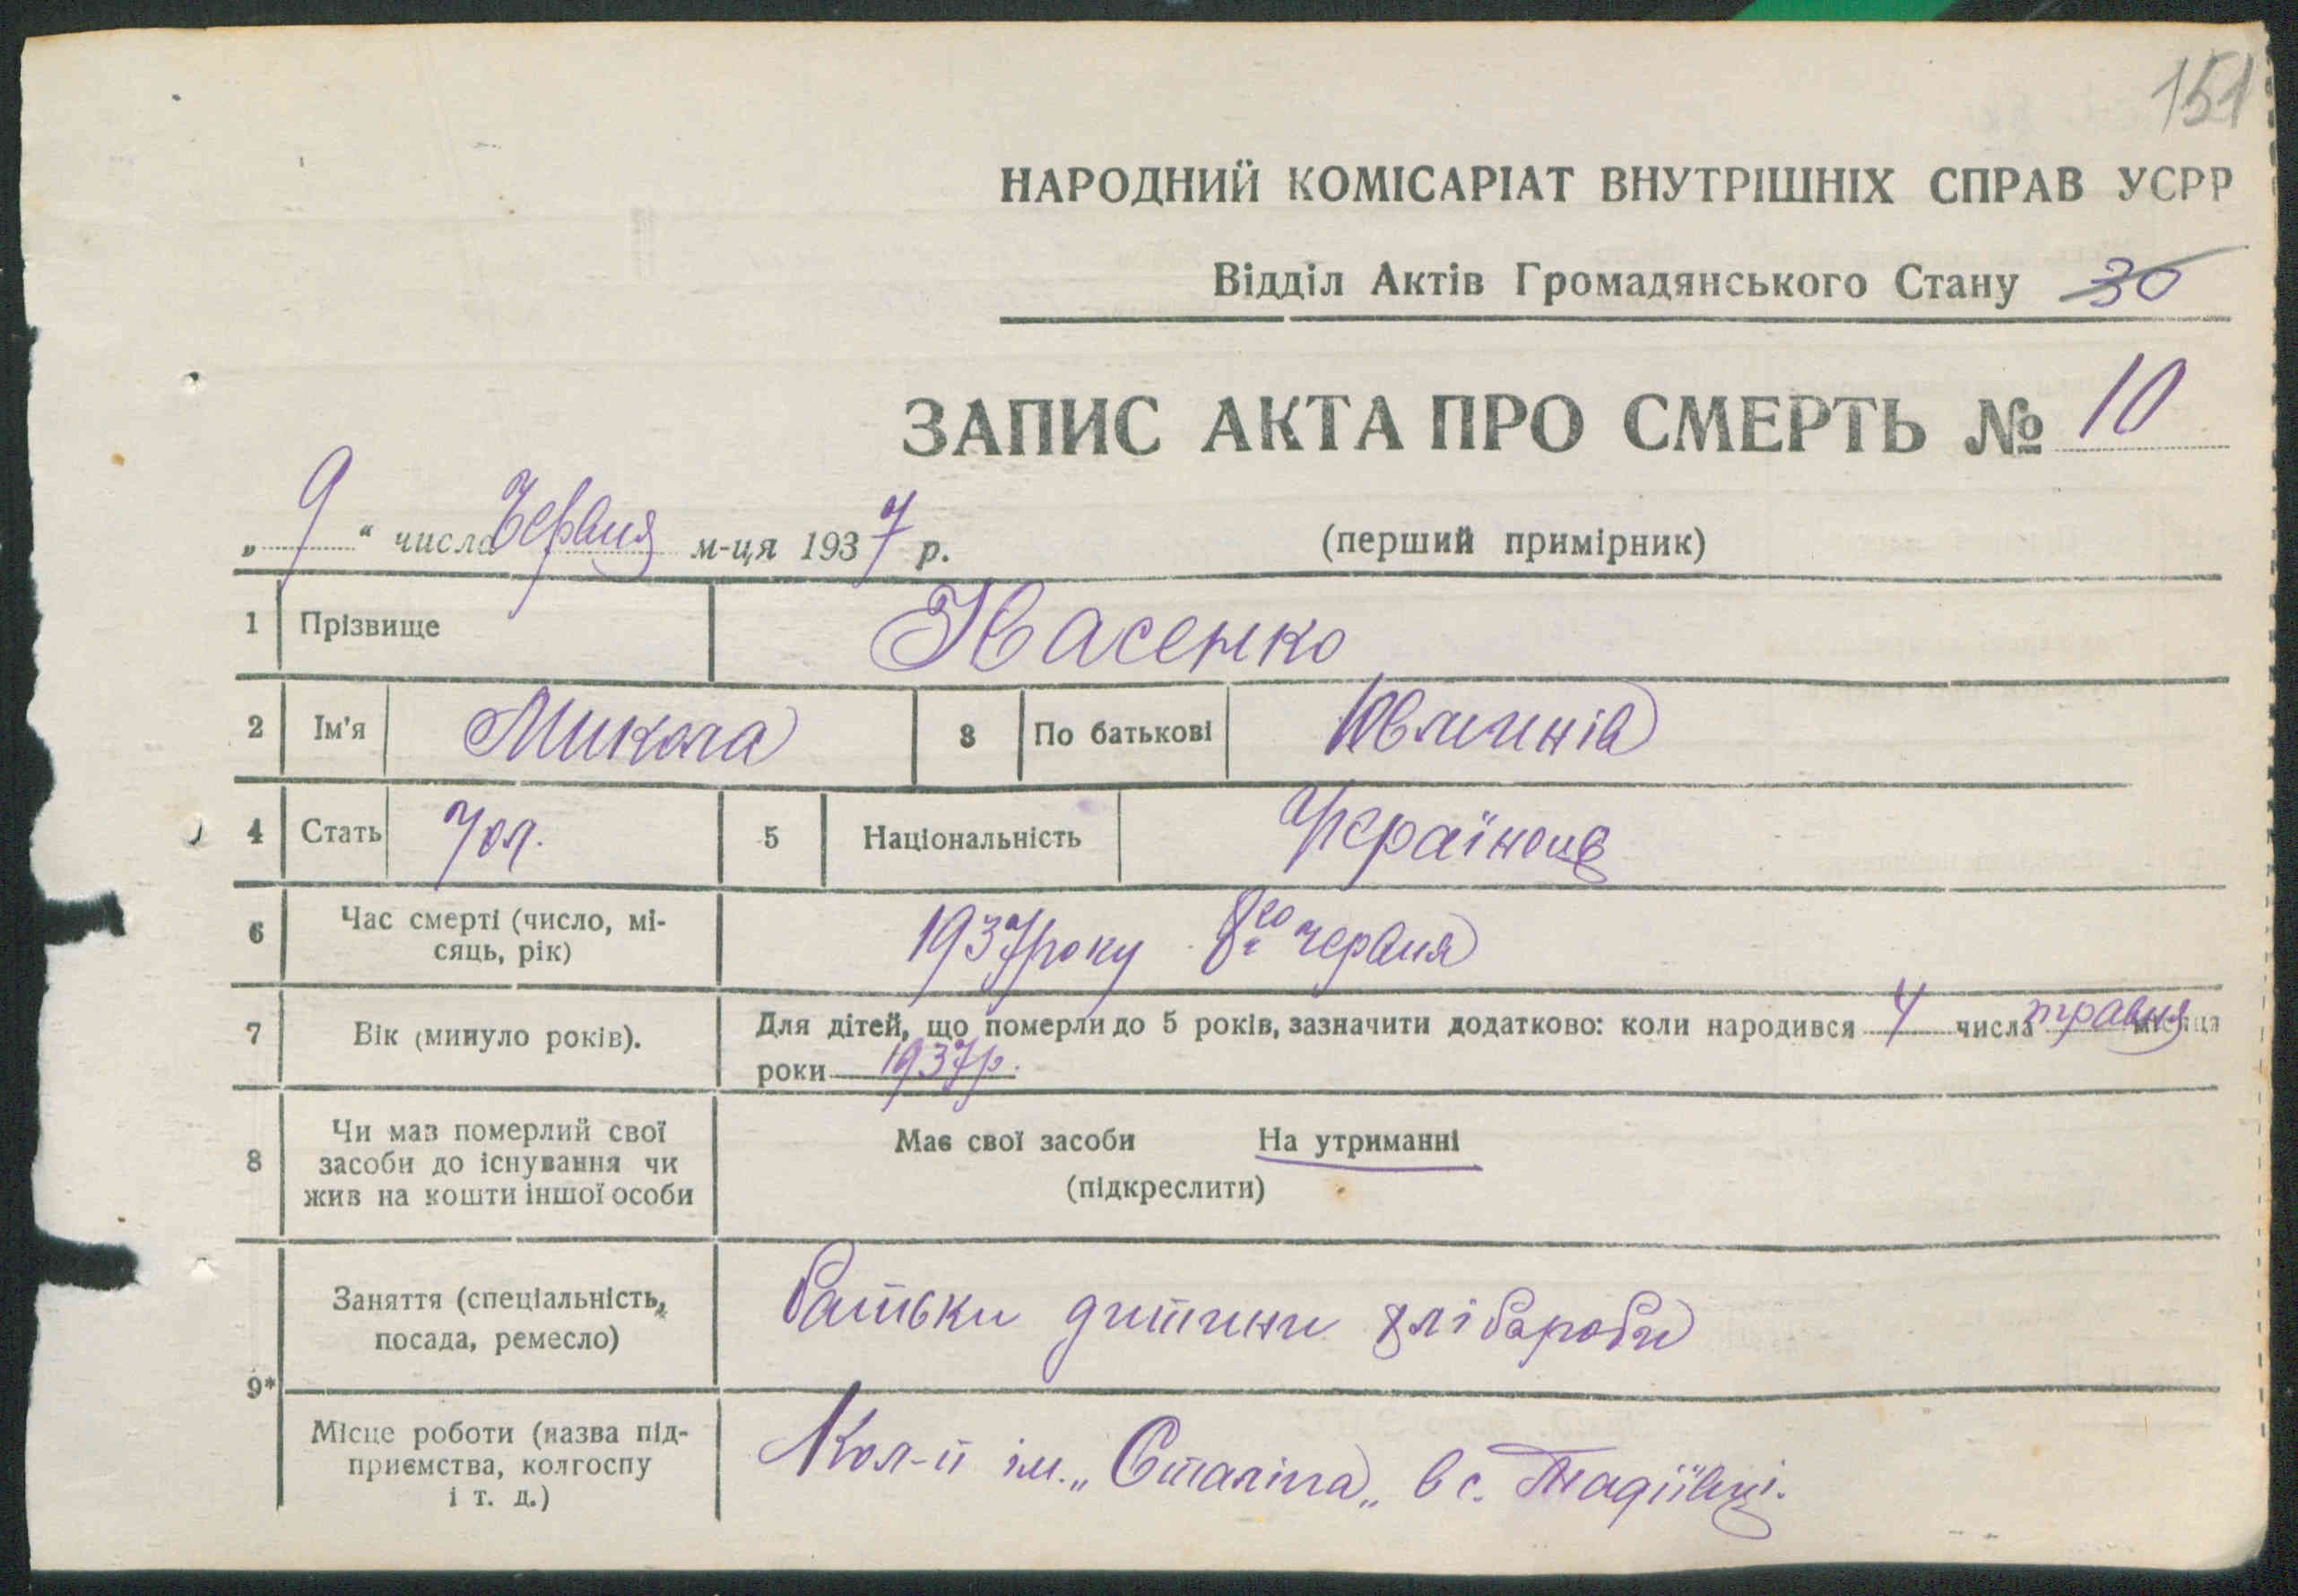 151
НАРОДНИЙ КОМІСАРІАТ ВНУТРІШНІХ СПРАВ УСРР
Відділ Актів Громадянського Стану 30
ЗАПИС АКТА ПРО СМЕРТЬ № 10
„ 9 “ числа Червня м-ця 1937 р. (перший примірник)
1 Прізвище Насенко
2 Ім'я Микола 3 По батькові
4 Стать Чол. 5 Національність Українець
6 Час смерті (число, мі- 1937 року 8го червня
сяць, рік)
7 Вік (минуло років). Для дітей, що померли до 5 років, зазначити додатково: коли народився 4 числа травня місяця
роки 1937р.
8 Чи мав померлий свої
засоби до існування чи
жив на кошти іншої особи
Має свої засоби На утриманні
(підкреслити)
9*
Заняття (спеціальність,
посада, ремесло)
батьки дитини хлібароби
Місце роботи (назва під-
приємства, колгоспу
і т. д.)
Кол-п ім. „Сталіна„ в с. Тадіївці.